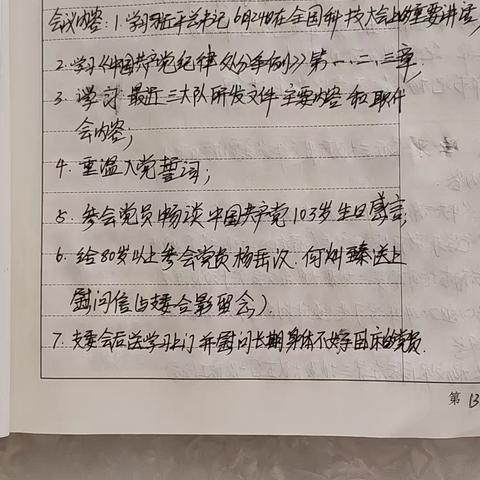 会议内容:1.学习习近平总书记6月24日在全国科技大会上的重要讲话;
2.学习《中国共产党纪律处分条例》第一、二、三章.
3.学习最近三大队研发文件主要内容和职代
会内容;
4.重温入党誓词;
5.参会党员畅谈中国共产党103岁生日感言;
6.给80岁以上参会党员杨岳汉.何炳臻送上
慰问信(与支委合影留念).
7.支委会后送学习上门并慰问长期身体不好卧床的党员.
第13